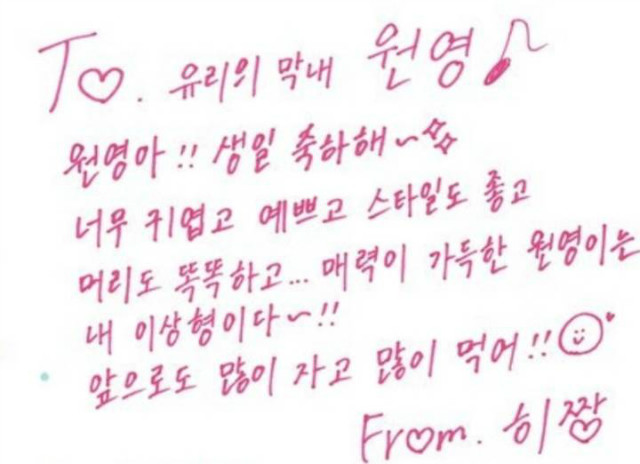 To. 유리의 막내 원영
원영아!! 생일 축하해~
너무 귀엽고 예쁘고 스타일도 좋고
머리도 똑똑하고... 매력이 가득한 원영이는
내 이상형이다~!!
앞으로도 많이 자고 많이 먹어!!
From. 히짱